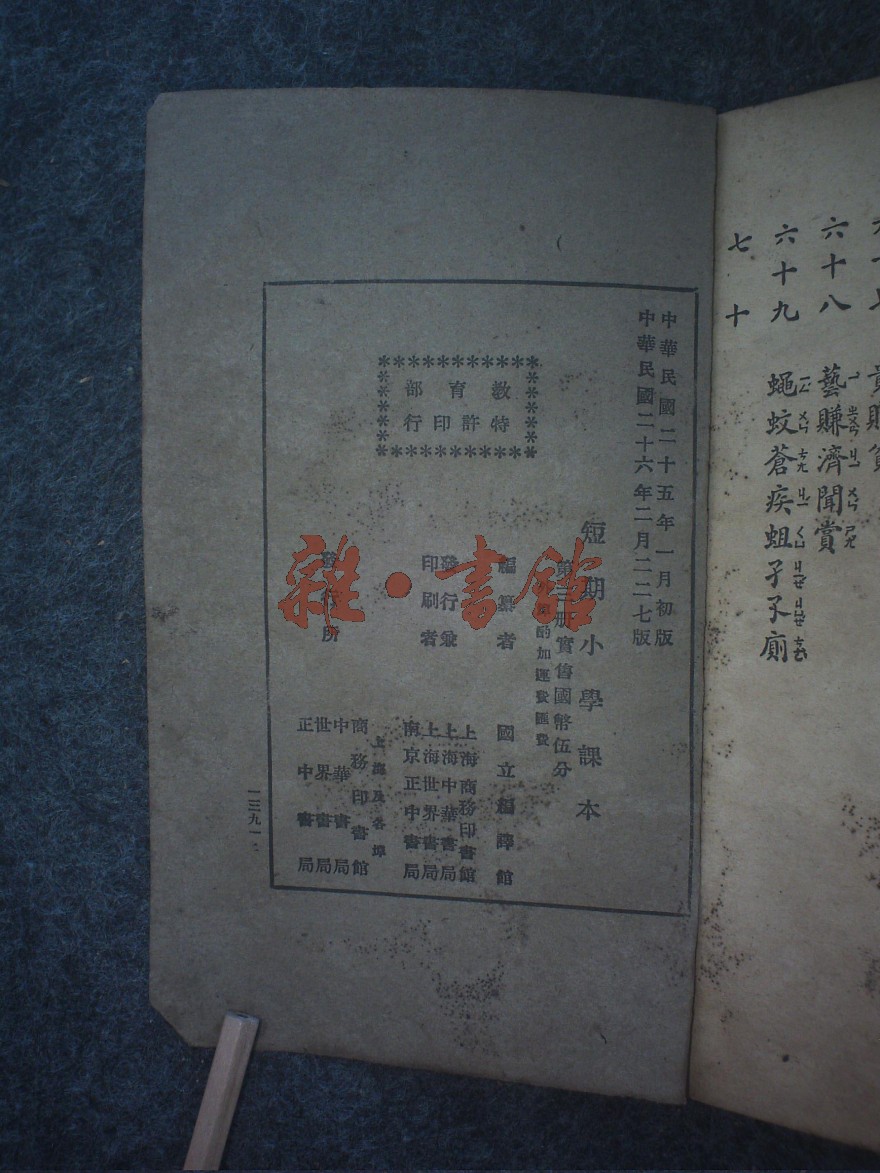 六十八　藝賺濟聞賞
六十九　蠅蚊蒼疾蛆孑孓廁
七十
中華民國二十五年一月初版
中華民國二十六年二月二二七版
短期小學課本
第三册實售國幣伍分
酌加運費匯費
編纂者　國立編譯館
發行兼
印刷者
上海商務印書館
上海中華書局
上海世界書局
南京正中書局
教育部
特許印行
發行所
上海及各埠
商務印書館
中華書局
世界書局
正中書局
雜·書館